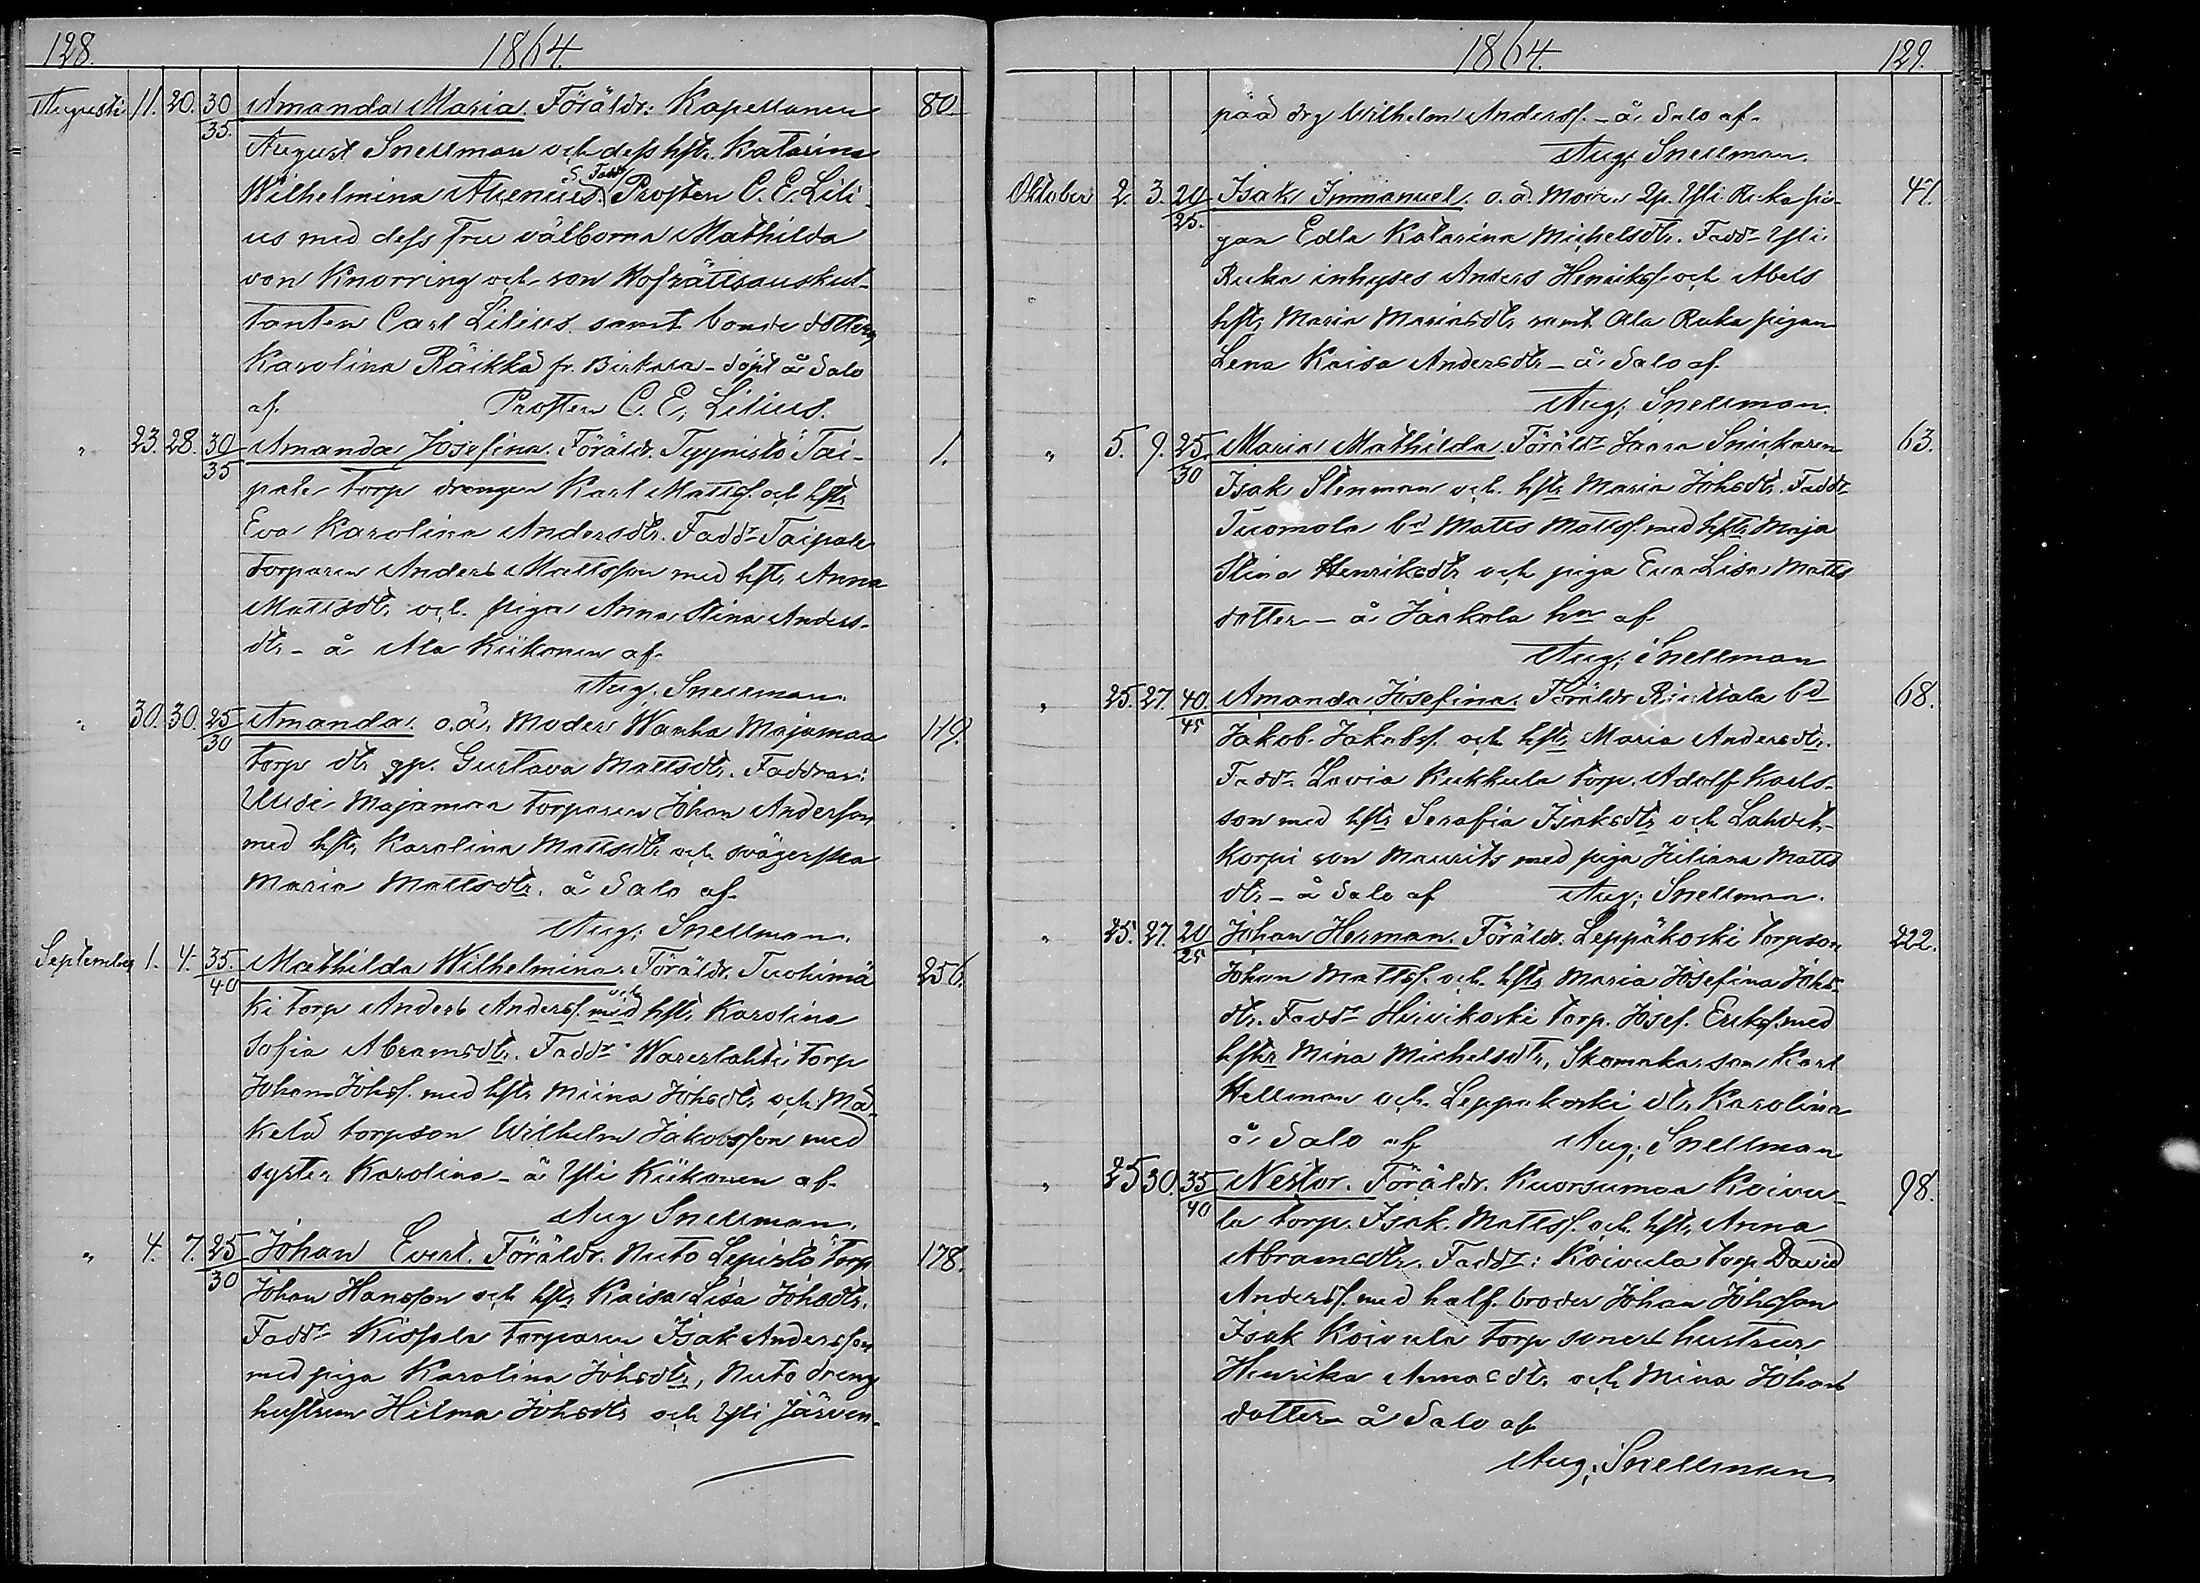 128. 1864.
Augusti 11. 20. 30/35 Amanda Maria. Föräldr: Kapellanen 80
August Snellman och dess hstr. Katarina
Wilhelmina Alenius. S. Faddr Prosten C. E. Lili-
us med dess Fru välborna Mathilda
von Knorring och son Hofrättsauskul-
tanten Carl Lilius samt bonde dottern
Karolina Räikkä fr. Birkala - döpt å Salo
af. Prosten C. E. Lilius.
" 23. 28. 30/35 Amanda Josefina. Föräldr. Typpistö Tai- 1.
pale torp drengen Karl Mattss. och hstr
Eva Karolina Andersdtr. Faddr Taipale
torparen Anders Mattsson med hstr Anna
Mattsdtr och piga Anna Stina Anders-
dtr - å Ala Kiikonen af.
Aug. Snellman.
" 30. 30. 25/30 Amanda. o.ä. Moder Wanha Majamaa 119.
torp dtr qp. Gustava Mattsdtr. Faddrar:
Uusi Majamaa torparen Johan Andersson
med hstr Karolina Mattsdtr och svägerska
Maria Mattsdtr. å Salo af.
Aug: Snellman.
September 1. 4. 35/40 Mathilda Wilhelmina. Föräldr. Tuohimä 256.
ki torp Anders Anderss. med och hstr Karolina
Sofia Abramsdtr. Faddr Warestahti torp
Johan Johss. med hstr Miina Johsdtr och Mä-
kelä torpson Wilhelm Jakobsson med
syster Karolina - å Yli Kiikonen af.
Aug Snellman.
" 4. 7. 25/30 Johan Evert. Föräldr. Nuto Lepistö torp 178.
Johan Hansson och hstr Kaisa Lisa Johsdtr.
Faddr Kissala torparen Isak Andersson
med piga Karolina Johsdtr, Nuto dreng
hustrun Hilma Johsdtr och Yli Järven-

1864. 129.
pää drg Wilhelm Anderss. - å Salo af.
Aug: Snellman.
Oktober 2. 3. 20/25. Isak Immanuel. o.ä. Moder Qp. Yli Ruka pi- 47.
gan Edla Katarina Michelsdtr. Faddr Yli
Ruka inhyses Anders Henrikss. och Abels
hstr Maria Mariasdtr samt Ala Ruka pigan
Lena Kaisa Andersdtr - å Salo af.
Aug: Snellman.
" 5. 9. 25/30 Maria Mathilda Föräldr Jaara Snickaren 63.
Isak Stenman och hstr Maria Johsdtr. Faddr
Tuomola bd Matts Mattss. med hstr Maja
Stina Henriksdtr och piga Eva Lisa Matts
dotter - å Jaakola hn af
Aug: Snellman
" 25. 27. 40/45 Amanda Josefina. Föräldr Riuttala bd 68.
Jakob Jakobss. och hstr Maria Andersdtr.
Faddr Lavia Kukkula torp. Adolf Karls-
son med hstr Serafia Isaksdtr och Lahdek-
korpi son Maurits med piga Juliana Matts
dtr - å Salo af Aug: Snellman.
" 25. 27. 20/25 Johan Herman. Föräldr. Leppäkoski torpson 222.
Johan Mattss. och hstr Maria Josefina Johs-
dtr. Faddr Hiivikoski torp. Josef. Erikss. med
hstr Mina Michelsdtr, Skomakarson Karl
Hellman och Leppakoski dtr Karolina
å Salo af Aug: Snellman
" 25 30. 35/40 Nestor. Föräldr. Kuorsumaa Koivu- 98.
la torp. Isak Mattss. och hstr Anna
Abramsdtr. Faddr: Koivula torp David
Anderss. med half. broder Johan Johsson
Isak Koivula torp sonens hustrur
Henrika Annasdtr och Mina Johans
dotter å Salo af
Aug: Snellman